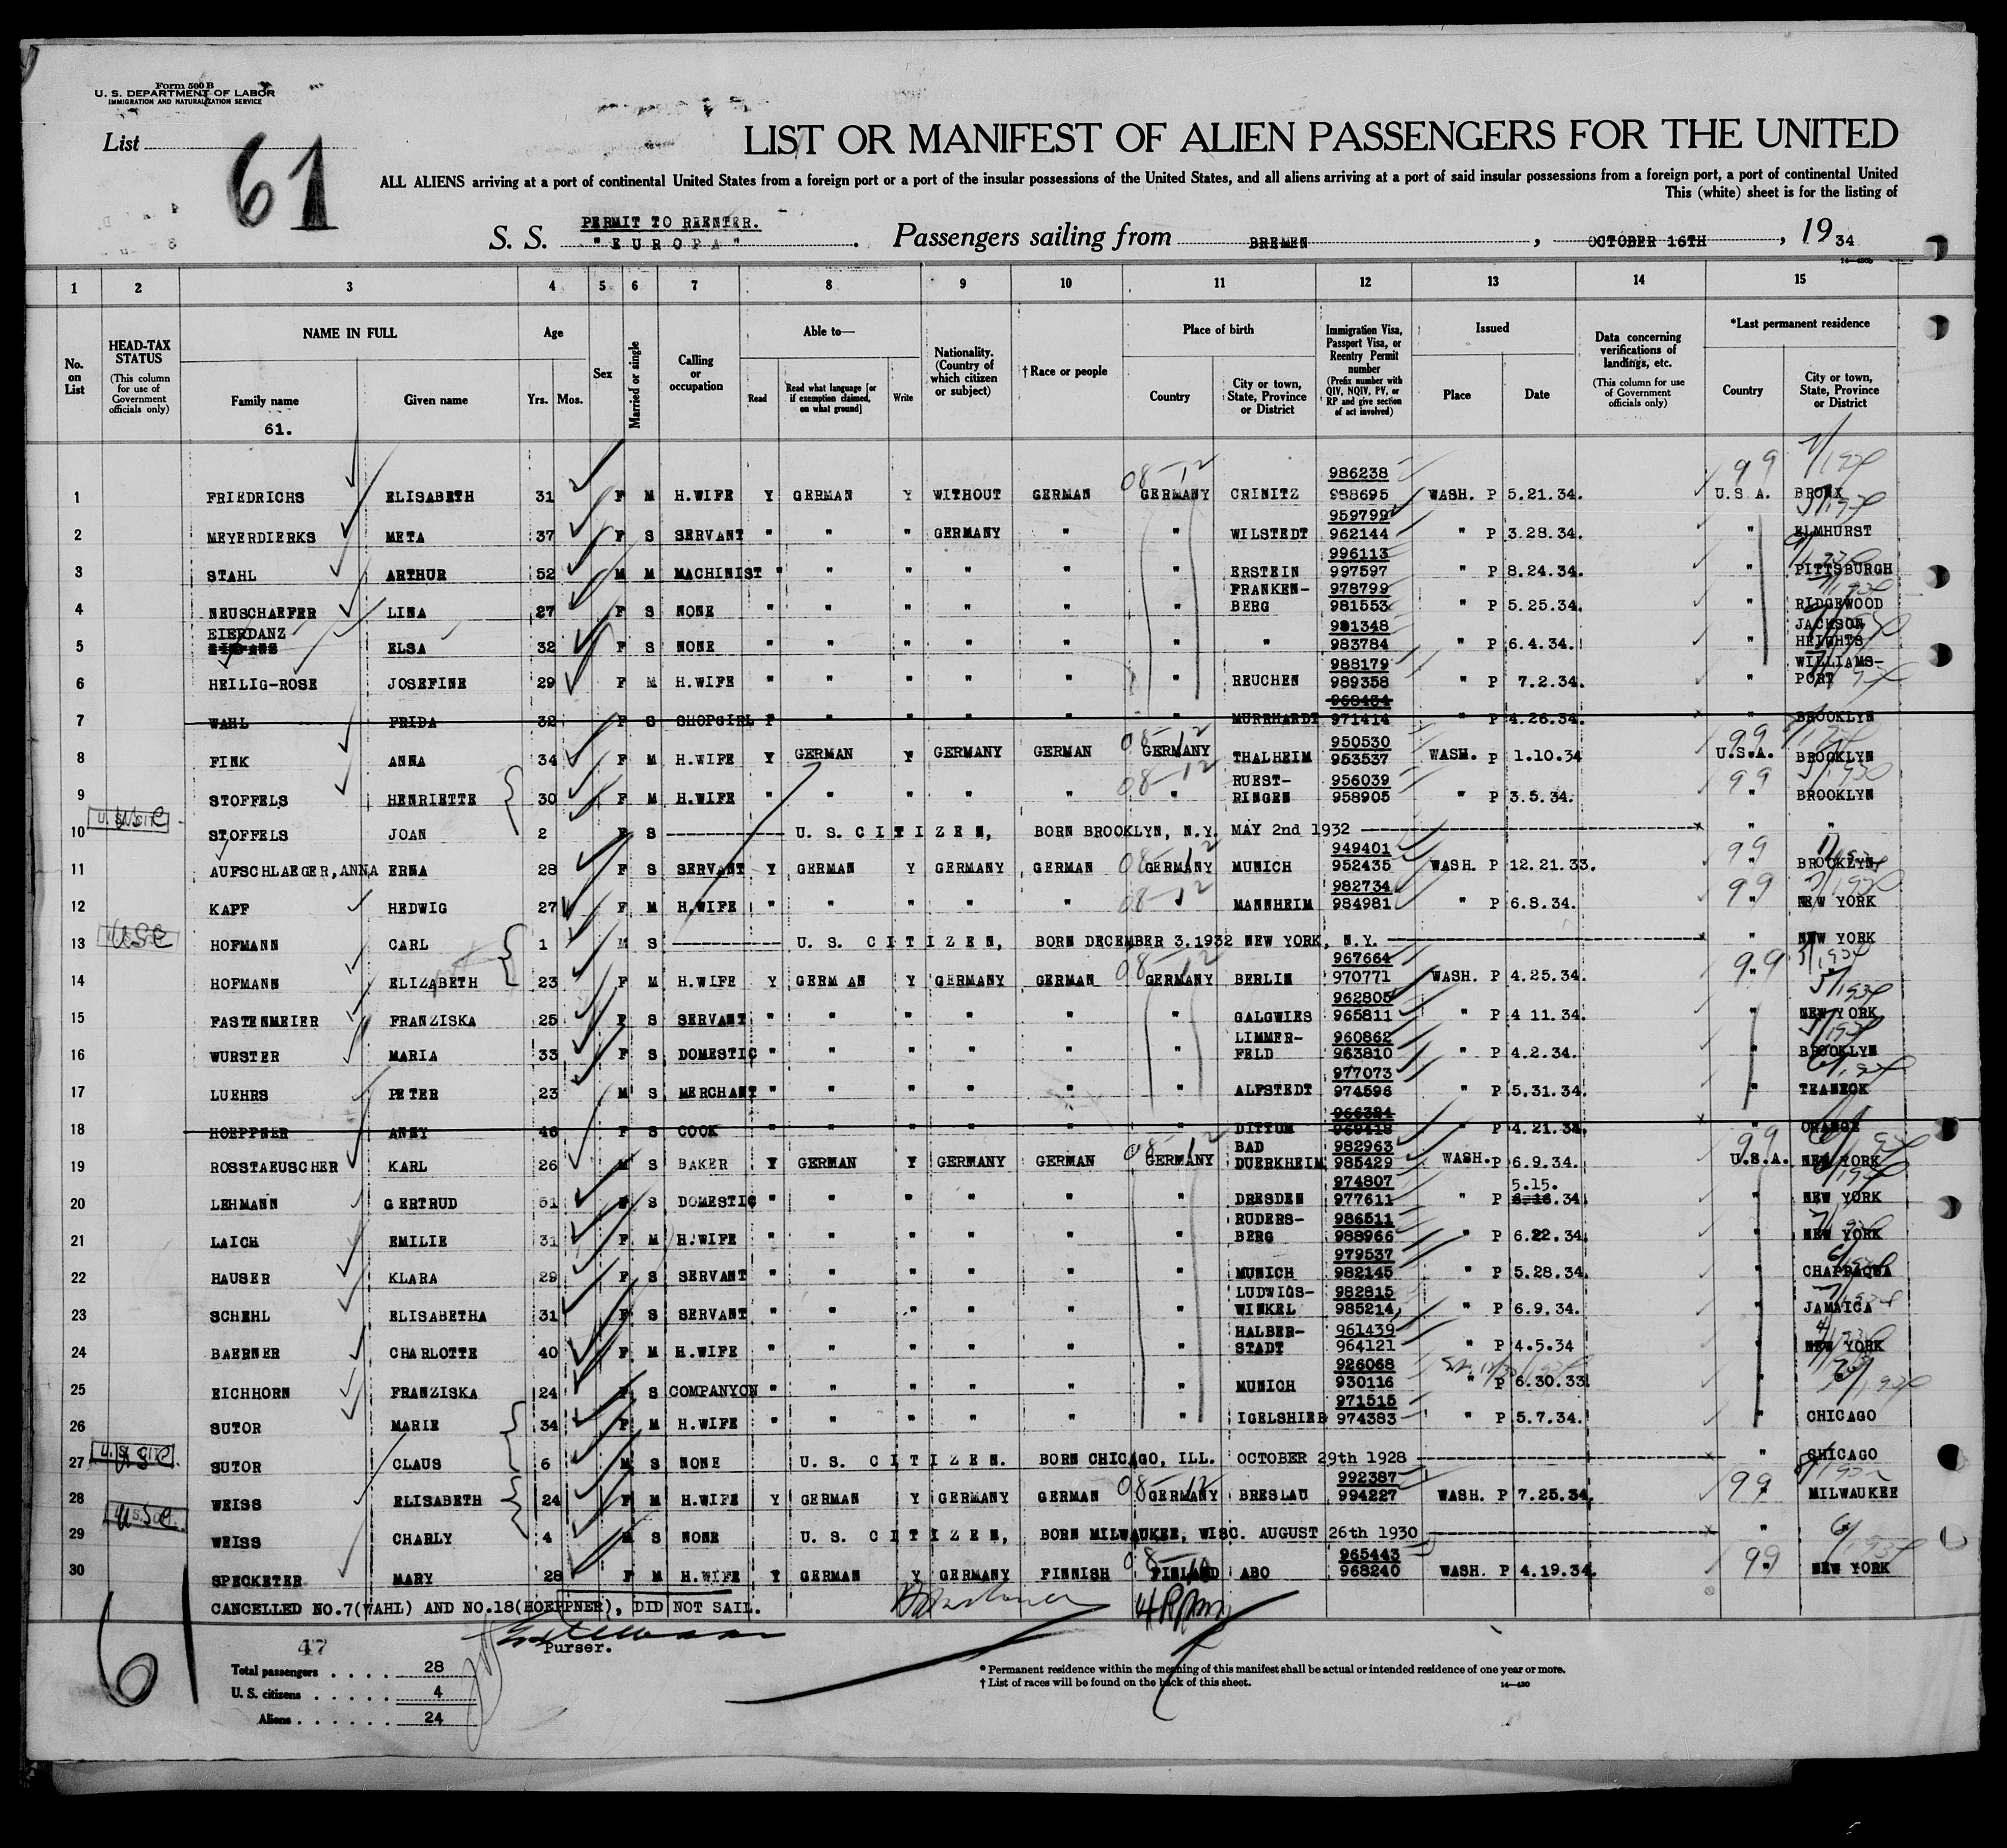 Form 500 B
U. S. DEPARTMENT OF LABOR
IMMIGRATION AND NATURALIZATION SERVICE
List 61
LIST OR MANIFEST OF ALIEN PASSENGERS FOR THE UNITED
ALL ALIENS arriving at a port of continental United States from a foreign port or a port of the insular possessions of the United States, and all aliens arriving at a port of said insular possessions from a foreign port, a port of continental United
This (white) sheet is for the listing of
PERMIT TO REENTER.
S. S. "EUROPA" . Passengers sailing from BREMEN , OCTOBER 16TH , 1934
1 2 3 4 5 6 7 8 9 10 11 12 13 14 15
No. on List
HEAD-TAX STATUS (This column for use of Government officials only)
NAME IN FULL Family name Given name
Age Yrs. Mos.
Sex
Married or single
Calling or occupation
Able to— Read Read what language [or if exemption claimed, on what ground] Write
Nationality. (Country of which citizen or subject)
†Race or people
Place of birth Country City or town, State, Province or District
Immigration Visa, Passport Visa, or Reentry Permit number (Prefix number with QIV, NQIV, PV, or RP and give section of act involved)
Issued Place Date
Data concerning verifications of landings, etc. (This column for use of Government officials only)
*Last permanent residence Country City or town, State, Province or District
61.
986238
1 FRIEDRICHS ELISABETH 31 F M H.WIFE Y GERMAN Y WITHOUT GERMAN GERMANY CRINITZ 988695 WASH. P 5.21.34. U.S.A. BRONX
959799
2 MEYERDIERKS META 37 F S SERVANT " " " GERMANY " " WILSTEDT 962144 " P 3.28.34. " ELMHURST
996113
3 STAHL ARTHUR 52 M M MACHINIST " " " " " " ERSTEIN 997597 " P 8.24.34. " PITTSBURGH
FRANKEN- 978799
4 NEUSCHAEFER LINA 27 F S NONE " " " " " " BERG 981553 " P 5.25.34. " RIDGEWOOD
EIERDANZ 981348 JACKSON
5 ELSA 32 F S NONE " " " " " " " 983784 " P 6.4.34. " HEIGHTS
988179 WILLIAMS-
6 HEILIG-ROSE JOSEFINE 29 F M H.WIFE " " " " " " REUCHEN 989358 " P 7.2.34. " PORT
968484
7 WAHL FRIDA 32 F S SHOPGIRL " " " " " " MURRHARDT 971414 " P 4.26.34. " BROOKLYN
950530
8 FINK ANNA 34 F M H.WIFE Y GERMAN Y GERMANY GERMAN GERMANY THALHEIM 953537 WASH. P 1.10.34 U.S.A. BROOKLYN
RUEST- 956039
9 STOFFELS HENRIETTE 30 F M H.WIFE " " " " " " RINGEN 958905 " P 3.5.34. " BROOKLYN
10 STOFFELS JOAN 2 F S U. S. CITIZEN, BORN BROOKLYN, N.Y. MAY 2nd 1932 " "
949401
11 AUFSCHLAEGER,ANNA ERNA 28 F S SERVANT Y GERMAN Y GERMANY GERMAN GERMANY MUNICH 952435 WASH. P 12.21.33. " BROOKLYN
982734
12 KAPF HEDWIG 27 F M H.WIFE " " " " " " MANNHEIM 984981 " P 6.8.34. " NEW YORK
13 HOFMANN CARL 1 M S U. S. CITIZEN, BORN DECEMBER 3.1932 NEW YORK, N.Y. " NEW YORK
967664
14 HOFMANN ELIZABETH 23 F M H.WIFE Y GERM AN Y GERMANY GERMAN GERMANY BERLIN 970771 WASH. P 4.25.34. " "
962805
15 FASTENMEIER FRANZISKA 25 F S SERVANT " " " " " " GALGWIES 965811 " P 4 11.34. " NEW YORK
LIMMER- 960862
16 WURSTER MARIA 33 F S DOMESTIC " " " " " " FELD 963810 " P 4.2.34. " BROOKLYN
977073
17 LUEHRS PETER 23 M S MERCHANT " " " " " " ALFSTEDT 974596 " P 5.31.34. " TEANECK
966384
18 HOEPPNER ANNY 46 F S COOK " " " " " " DITTUM 969418 " P 4.21.34. " ORANGE
BAD 982963
19 ROSSTAEUSCHER KARL 26 M S BAKER Y GERMAN Y GERMANY GERMAN GERMANY DUERKHEIM 985429 WASH. P 6.9.34. U.S.A. NEW YORK
974807 5.15.
20 LEHMANN GERTRUD 51 F S DOMESTIC " " " " " " DRESDEN 977611 " P 6.16.34. " NEW YORK
RUDERS- 986511
21 LAICH EMILIE 31 F M H.WIFE " " " " " " BERG 988966 " P 6.22.34. " NEW YORK
979537
22 HAUSER KLARA 29 F S SERVANT " " " " " " MUNICH 982145 " P 5.28.34. " CHAPPAQUA
LUDWIGS- 982815
23 SCHEHL ELISABETHA 31 F S SERVANT " " " " " " WINKEL 985214 " P 6.9.34. " JAMAICA
HALBER- 961439
24 BAERNER CHARLOTTE 40 F M H.WIFE " " " " " " STADT 964121 " P 4.5.34 " NEW YORK
926068
25 EICHHORN FRANZISKA 24 F S COMPANYON " " " " " " MUNICH 930116 " P 6.30.33. "
971515
26 SUTOR MARIE 34 F M H.WIFE " " " " " " IGELSHIEB 974383 " P 5.7.34. " CHICAGO
27 SUTOR CLAUS 6 M S NONE U. S. CITIZEN. BORN CHICAGO, ILL. OCTOBER 29th 1928 " CHICAGO
992387
28 WEISS ELISABETH 24 F M H.WIFE Y GERMAN Y GERMANY GERMAN GERMANY BRESLAU 994227 WASH. P 7.25.34. " MILWAUKEE
29 WEISS CHARLY 4 M S NONE U. S. CITIZEN, BORN MILWAUKEE, WISC. AUGUST 26th 1930 " "
965443
30 SPECKETER MARY 28 F M H.WIFE Y GERMAN Y GERMANY FINNISH FINLAND ABO 968240 WASH. P 4.19.34. " NEW YORK
CANCELLED NO.7(WAHL) AND NO.18(HOEPPNER), DID NOT SAIL.
Purser.
47
61
Total passengers . . . . 28
U. S. citizens . . . . . 4
Aliens . . . . . . 24
* Permanent residence within the meaning of this manifest shall be actual or intended residence of one year or more.
† List of races will be found on the back of this sheet.
14—430